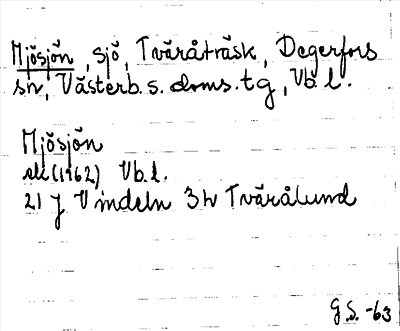 Mjösjön, sjö, Tväråträsk, Degerfors
sn, Västerb. s. doms. tg, Vb. l.
Mjösjön
ek (1962) Vb. l.
21 J Vindeln 3h Tvärålund
G.S. -63